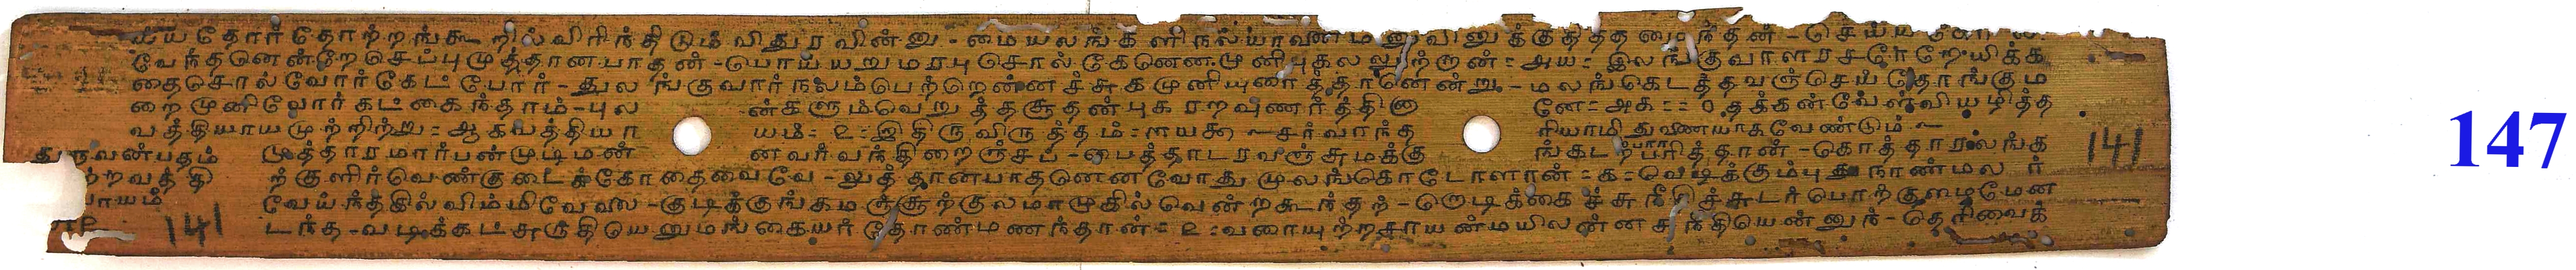 யயதோர்தோற்றங்கூறில்விரிந்திடும்விதுரவின்னு-மையலங்களிநல்யாவண
வேந்தனென்றேசெப்புமுத்தானபாதன்-பொய்யறுமரபுசொல்கேனெனமுனிபுகலலுற்றான்= அய= இலங்குவாளரசரேறேயிக்க
தைசொல்வோர்கேட்போர்-துலங்குவார்நலம்பெற்றென்னச்சுகமுனியுரைத்தானென்று-மலங்கெடத்தவஞ்செய்தோங்கும
றைமுனிவோர்கட்கைந்தாம்-புல ன்களும்வெறுத்தசூதன்புகரறவுணர்த்தினா னே=அக==0தக்கன்வேள்வியழித்த
வத்தியாயமுற்றிற்று=ஆகவத்தியா யம்=உ=இதிருவிருத்தம்=ளயகூ~சர்வாந்த ரியாமிதுணையாகவேண்டும்~
துருவன்பதம் முத்தாரமார்பன்முடிமன் னவர்வந்திறைஞ்சப்-பைத்தாடரவஞ்சுமக்கு ங்கடற்பாரரித்தான்-கொத்தாரலங்க
ற்றவத்தி ற்குளிர்வெண்குடைக்கோதைவேவே-லுத்தானபாதனெனவோதுமுலங்கொடோளான்=க=வெடிக்கும்புதுநாண்மலர்
யாயம் வேய்ந்தகில்விம்மிவேவல-குடிக்குங்கமஞ்சூற்குலமாமுகில்வென்றகூந்தற்-றொடிக்கைச்சுநீதிச்சுடர்பொற்குழைமேன
டந்த-வடிக்கட்சுருதியெனுமங்கையர்தோண்மணந்தான்=உ=வரையுற்றசாயன்மயிலன்னசுநீதியென்னுந்-தெரிவைக்
141
141
147